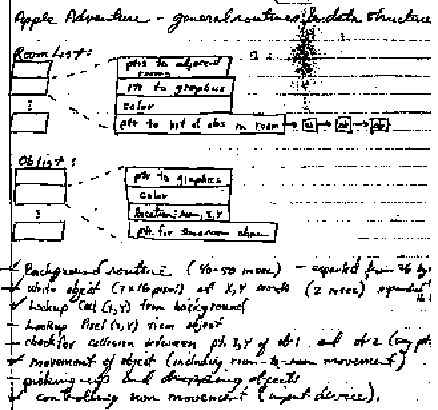 Apple Adventure - general routines & data structure
Room List:
ptrs to adjacent
rooms
ptr to graphics
color
ptr to list of obs in room → ob → ob → ob
Ob List:
ptr to graphics
color
location: room, X,Y
ptr for same room objs
Background routine (40-50 msec) - expanded for
write object (7x16 pixel) at X,Y coords (2 msec) expanded
Lookup Cell (X,Y) from background
Lookup Pixel (X,Y) from object
check for collision between pt. X,Y of ob1 and ob2
movement of object (including room-to-room movement)
picking up and dropping objects
controlling man movement (input device).